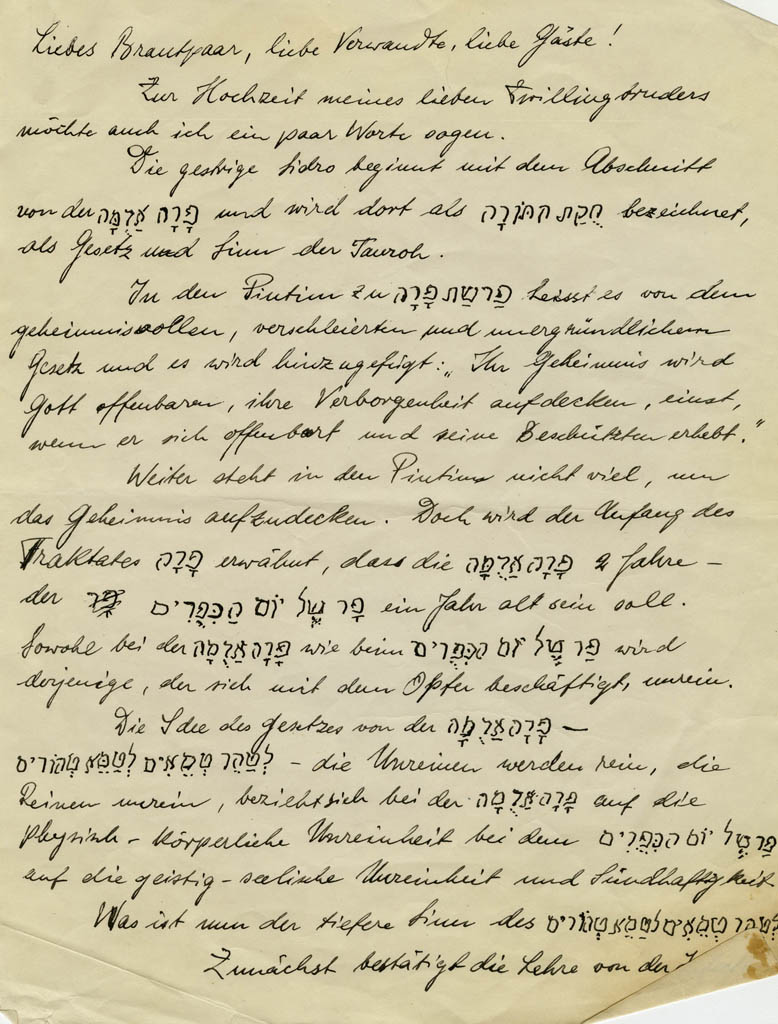 Liebes Brautpaar, liebe Verwandte, liebe Gäste!
Zur Hochzeit meines lieben Zwillingbruders
möchte auch ich ein paar Worte sagen.
Die gestrige Sidro beginnt mit dem Abschnitt
von der פָּרָה אֲדֻמָּה und wird dort als חֻקַת הַתּוֹרָה bezeichnet,
als Gesetz und Sinn der Tauroh.
In den Piutim zu פַּרְשַׁת פָּרָה heisst es von dem
geheimnisvollen, verschleierten und unergründlichem
Gesetz und es wird hinzugefügt: „Ihr Geheimnis wird
Gott offenbaren, ihre Verborgenheit aufdecken, einst,
wenn er sich offenbart und seine Beschützten erhebt."
Weiter steht in den Piutim nicht viel, um
das Geheimnis aufzudecken. Doch wird der Anfang des
Traktates פָּרָה erwähnt, dass die פָּרָה אֲדֻמָּה 2 Jahre –
der פָּר שֶׁל יוֹם הַכִּפֻּרִים ein Jahr alt sein soll.
Sowohl bei der פָּרָה אֲדֻמָּה wie beim פַּר שֶׁל יוֹם הַכִּפֻּרִים wird
derjenige, der sich mit dem Opfer beschäftigt, unrein.
Die Idee des Gesetzes von der פָּרָה אֲדֻמָּה –
לְטַהֵר טְמֵאִים לְטַמֵּא טְהוֹרִים – die Unreinen werden rein, die
Reinen unrein, bezieht sich bei der פָּרָה אֲדֻמָּה auf die
physisch-körperliche Unreinheit bei dem פַּר שֶׁל יוֹם הַכִּפֻּרִים
auf die geistig-seelische Unreinheit und Sündhaftigkeit
Was ist nun der tiefere Sinn des לְטַהֵר טְמֵאִים לְטַמֵּא טְהוֹרִים
Zunächst bestätigt die Lehre von der